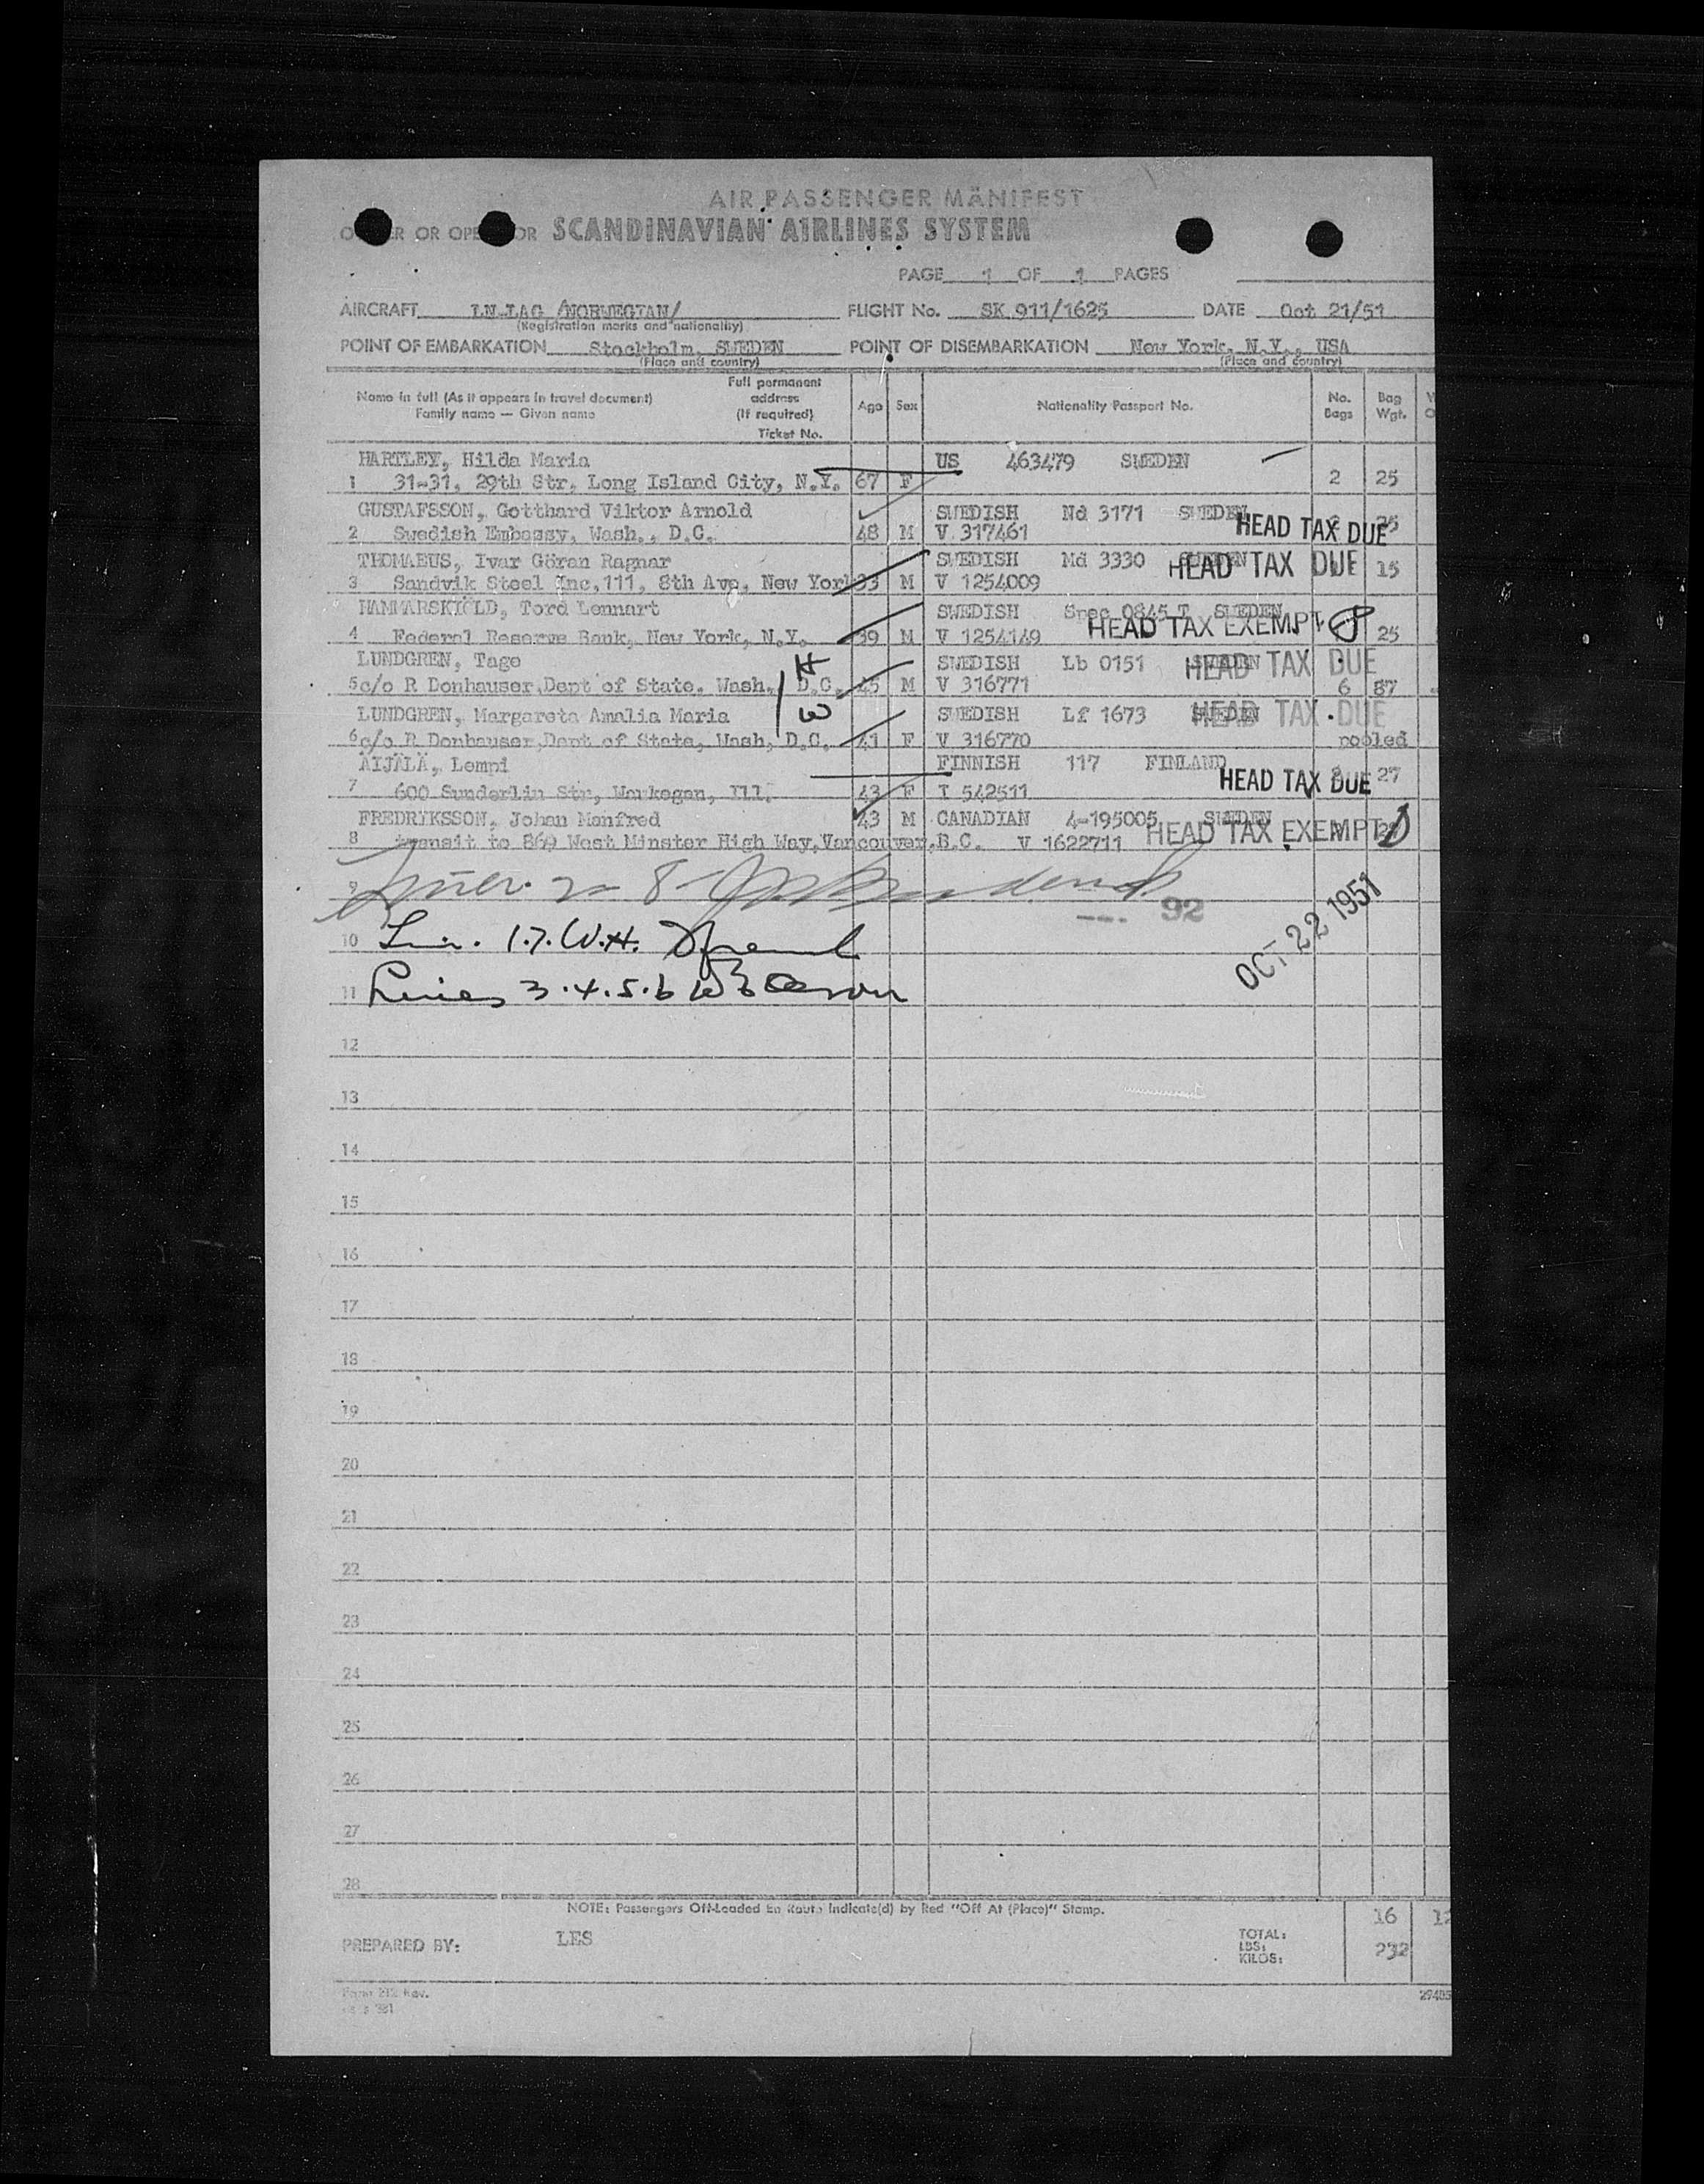 AIR PASSENGER MANIFEST
OR OPERATOR SCANDINAVIAN AIRLINES SYSTEM
PAGE 1 OF 1 PAGES
AIRCRAFT LN-LAG /NORWEGIAN/ FLIGHT No. SK 911/1625 DATE Oct 21/51
(Registration marks and nationality)
POINT OF EMBARKATION Stockholm, SWEDEN POINT OF DISEMBARKATION New York, N.Y., USA
(Place and country) (Place and country)
Name in full (As it appears in travel document) Family name — Given name Full permanent address (If required) Ticket No. Age Sex Nationality Passport No. No. Bags Bag Wgt.
HARTLEY, Hilda Maria US 463479 SWEDEN
1 31-31, 29th Str, Long Island City, N.Y. 67 F 2 25
GUSTAFSSON, Gotthard Viktor Arnold SWEDISH Nd 3171 SWEDEN HEAD TAX DUE
2 Swedish Embassy, Wash., D.C. 48 M V 317461 25
THOMAEUS, Ivar Göran Ragnar SWEDISH Md 3330 HEAD TAX DUE
3 Sandvik Steel Inc,111, 8th Ave, New York 33 M V 1254009 15
HAMMARSKIÖLD, Tord Lennart SWEDISH Spec 0845 T SWEDEN
4 Federal Reserve Bank, New York, N.Y. 39 M V 1254149 HEAD TAX EXEMPT 25
LUNDGREN, Tage H SWEDISH Lb 0151 HEAD TAX DUE
5 c/o R Donhauser,Dept of State. Wash. D.C. 45 M V 316771 6 87
LUNDGREN, Margareta Amalia Maria W SWEDISH Lf 1673 HEAD TAX DUE
6 c/o R Donhauser,Dept of State, Wash, D.C. 41 F V 316770 pooled
ÄIJÄLÄ, Lempi FINNISH 117 FINLAND
7 600 Sunderlin Str, Waukegan, Ill. 43 F I 542511 HEAD TAX DUE 27
FREDRIKSSON, Johan Manfred 43 M CANADIAN 4-195005 SWEDEN
8 transit to 869 West Minster High Way,Vancouver,B.C. V 1622711 HEAD TAX EXEMPT
9
92
OCT 22 1951
10 1.7. W.H.
11 Lines 3.4.5.6
12
13
14
15
16
17
18
19
20
21
22
23
24
25
26
27
28
NOTE: Passengers Off-Loaded En Route Indicate(d) by Red "Off At (Place)" Stamp.
PREPARED BY: LES TOTAL: 16 12
LBS:
KILOS: 232
Form 212 Rev.
29405